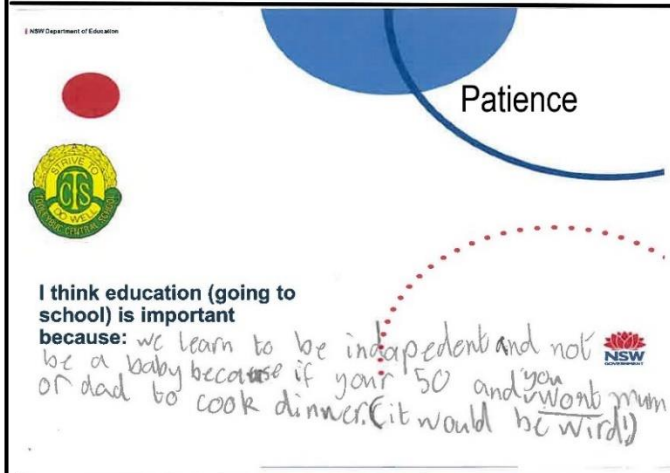 NSW Department of Education
Patience
STRIVE TO
CTS
DO WELL
TOOLEYBUC CENTRAL SCHOOL
I think education (going to
school) is important
because: we learn to be indapedent and not
be a baby because if your 50 and you wont mum
or dad to cook dinner. (it would be wird!)
NSW
GOVERNMENT